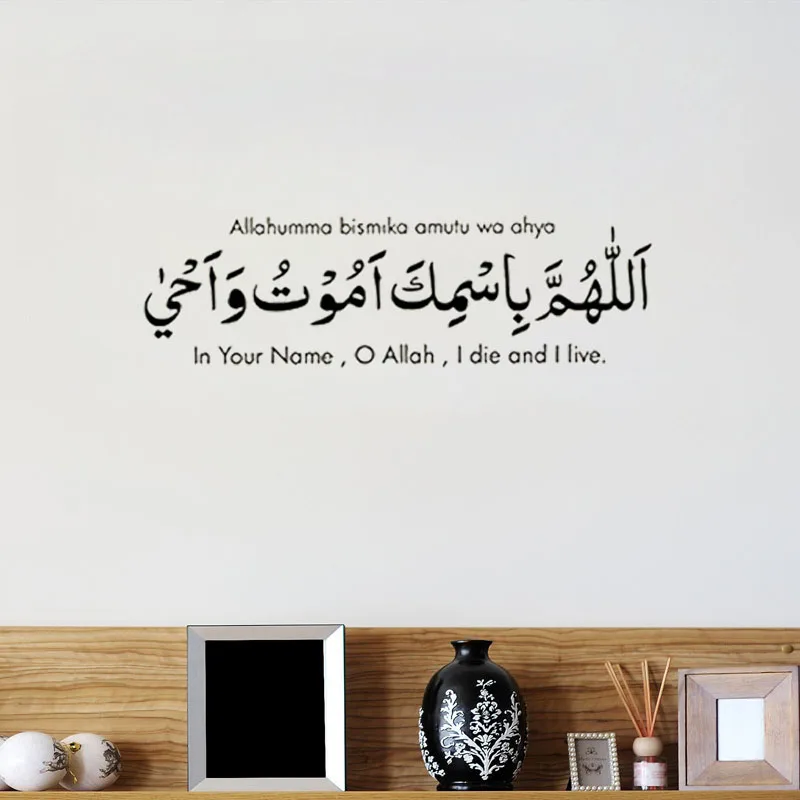 Allahumma bismika amutu wa ahya
اَللّٰهُمَّ بِاسْمِكَ اَمُوْتُ وَاَحْيٰ
In Your Name , O Allah , I die and I live.